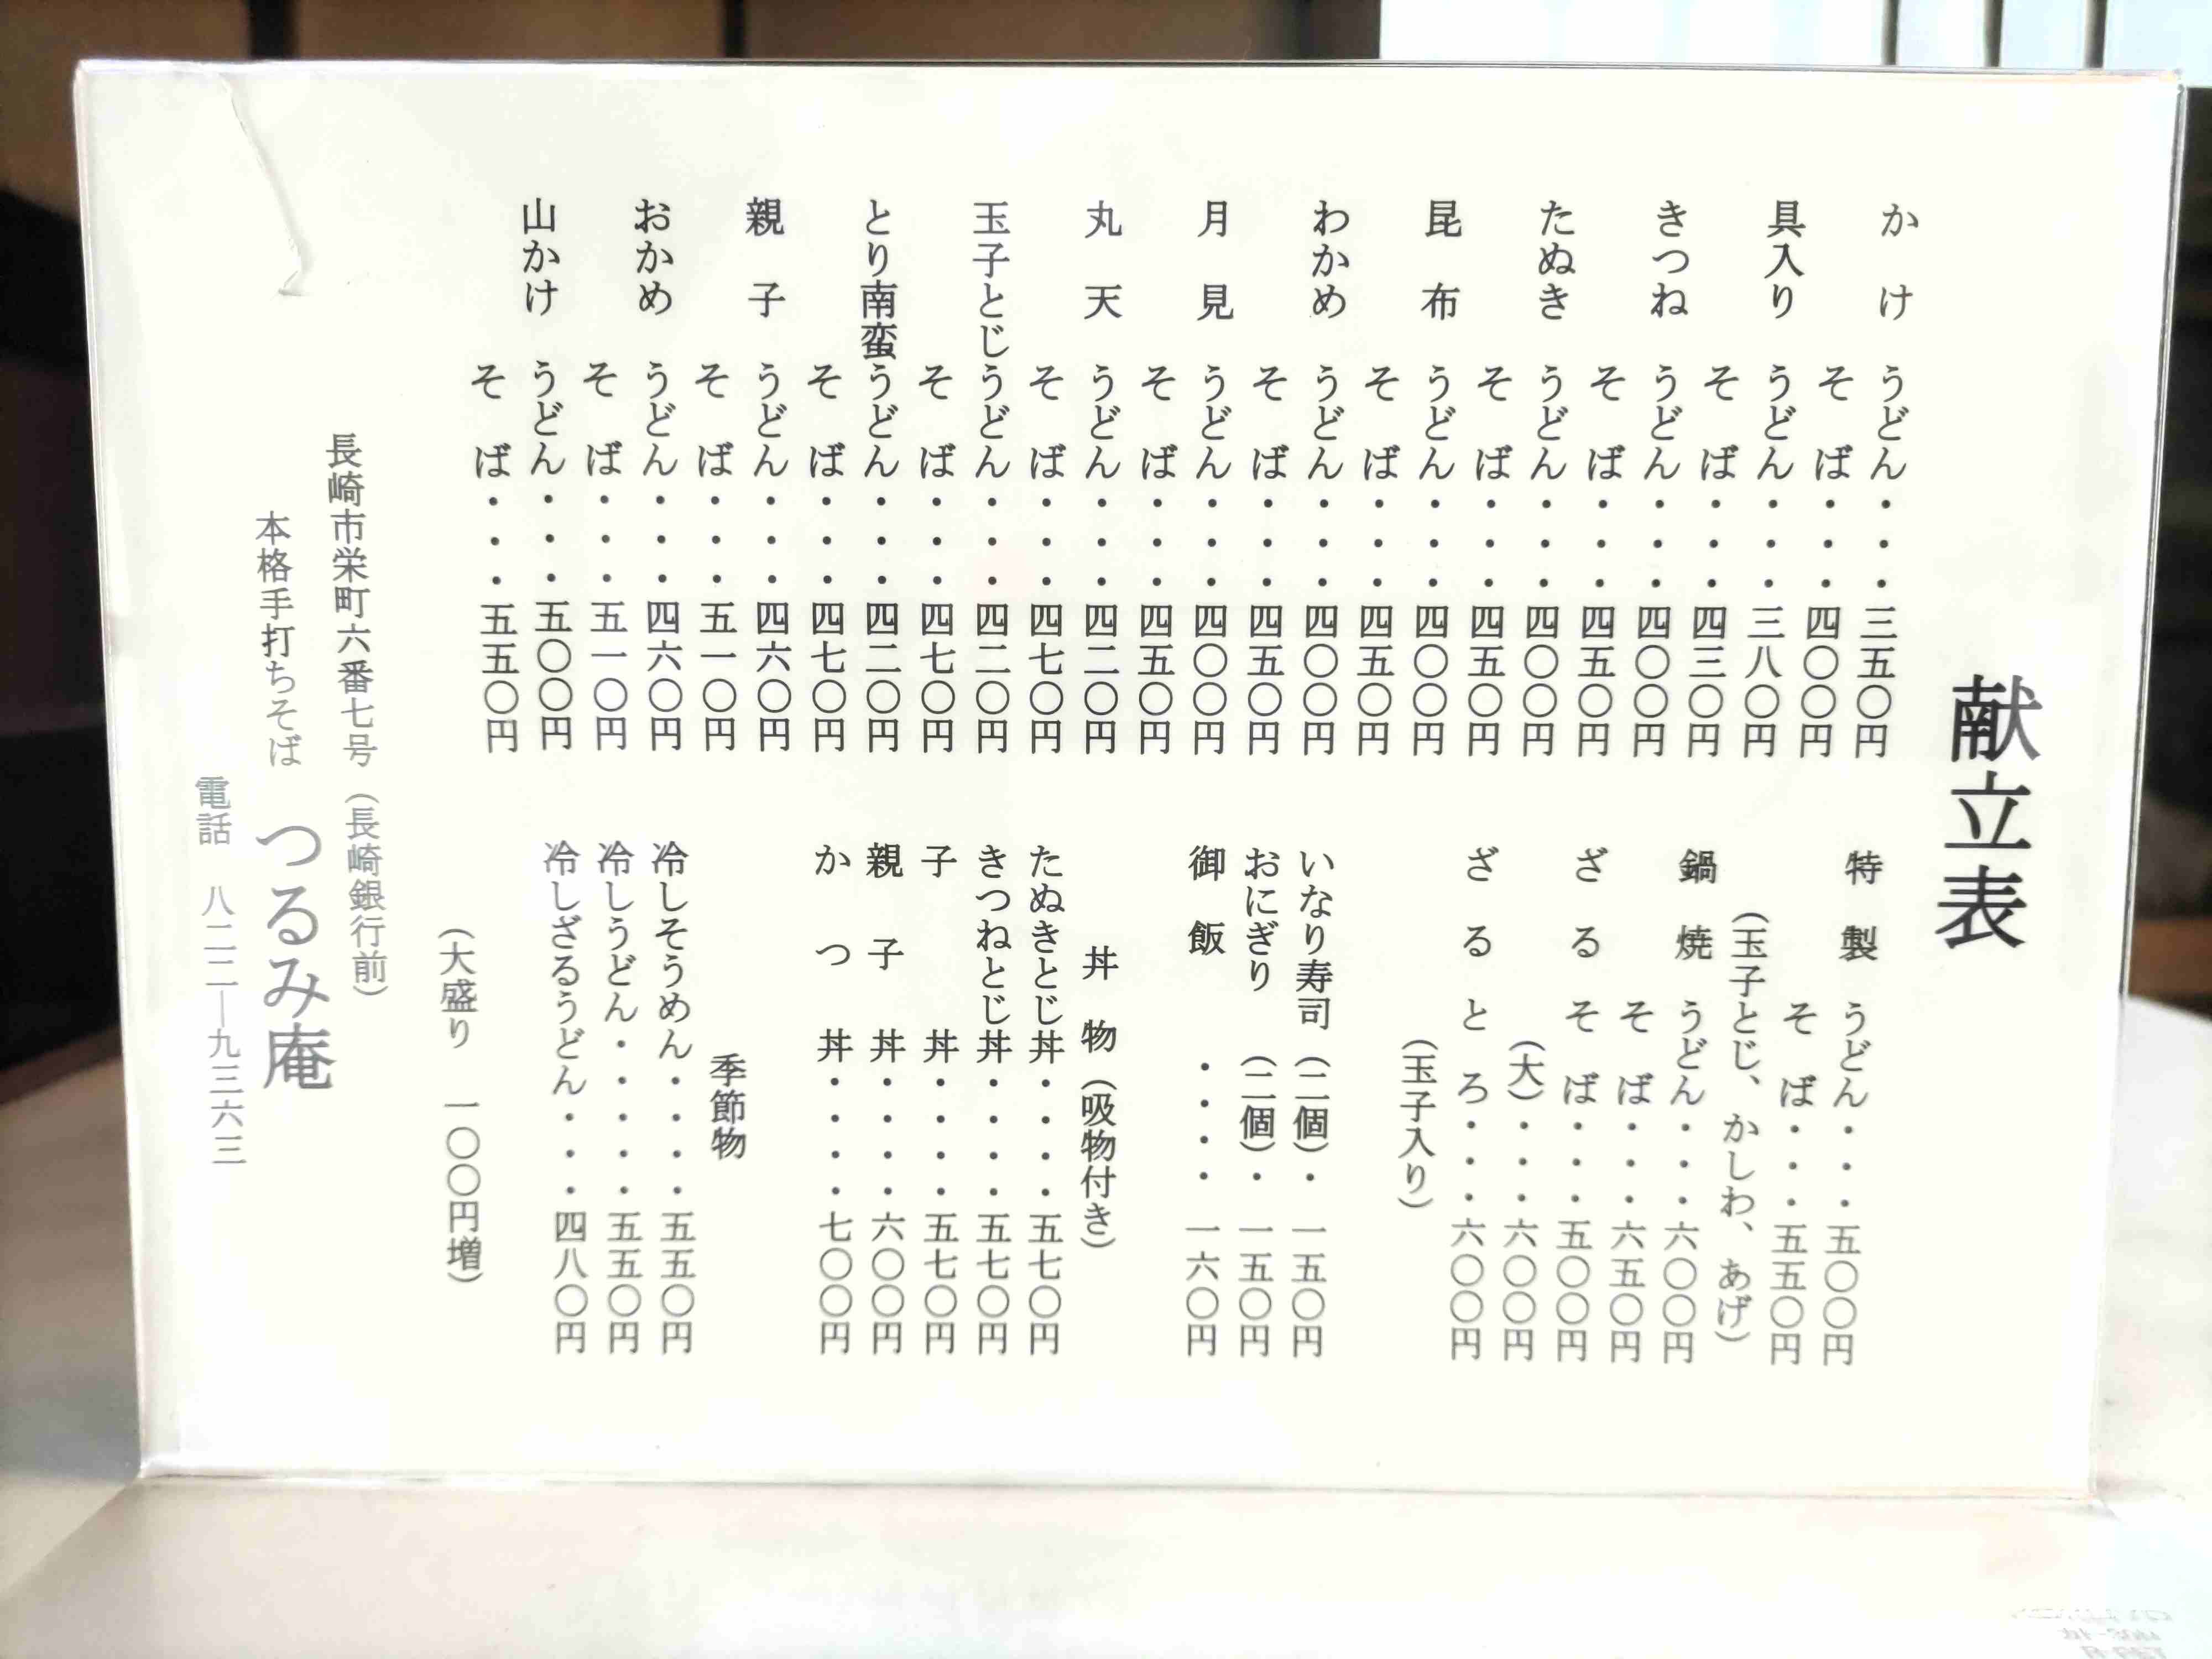 献立表
かけ うどん・・・三五〇円
そば・・・四〇〇円
具入り うどん・・・三八〇円
そば・・・四三〇円
きつね うどん・・・四〇〇円
そば・・・四五〇円
たぬき うどん・・・四〇〇円
そば・・・四五〇円
昆布 うどん・・・四〇〇円
そば・・・四五〇円
わかめ うどん・・・四〇〇円
そば・・・四五〇円
月見 うどん・・・四〇〇円
そば・・・四五〇円
丸天 うどん・・・四二〇円
そば・・・四七〇円
玉子とじ うどん・・・四二〇円
そば・・・四七〇円
とり南蛮 うどん・・・四二〇円
そば・・・四七〇円
親子 うどん・・・四六〇円
そば・・・五一〇円
おかめ うどん・・・四六〇円
そば・・・五一〇円
山かけ うどん・・・五〇〇円
そば・・・五五〇円
特製 うどん・・・五〇〇円
そば・・・五五〇円
（玉子とじ、かしわ、あげ）
鍋焼 うどん・・・六〇〇円
そば・・・六五〇円
ざるそば・・・五〇〇円
（大）・・・六〇〇円
ざるとろ・・・六〇〇円
（玉子入り）
いなり寿司（二個）・ 一五〇円
おにぎり （二個）・ 一五〇円
御飯 ・・・・ 一六〇円
丼物（吸物付き）
たぬきとじ丼・・・・五七〇円
きつねとじ丼・・・・五七〇円
子 丼・・・・五七〇円
親子 丼・・・・六〇〇円
かつ 丼・・・・七〇〇円
季節物
冷しそうめん・・・・五五〇円
冷しうどん・・・・・五五〇円
冷しざるうどん・・・四八〇円
（大盛り 一〇〇円増）
長崎市栄町六番七号（長崎銀行前）
本格手打ちそば つるみ庵
電話 八二二―九三六三